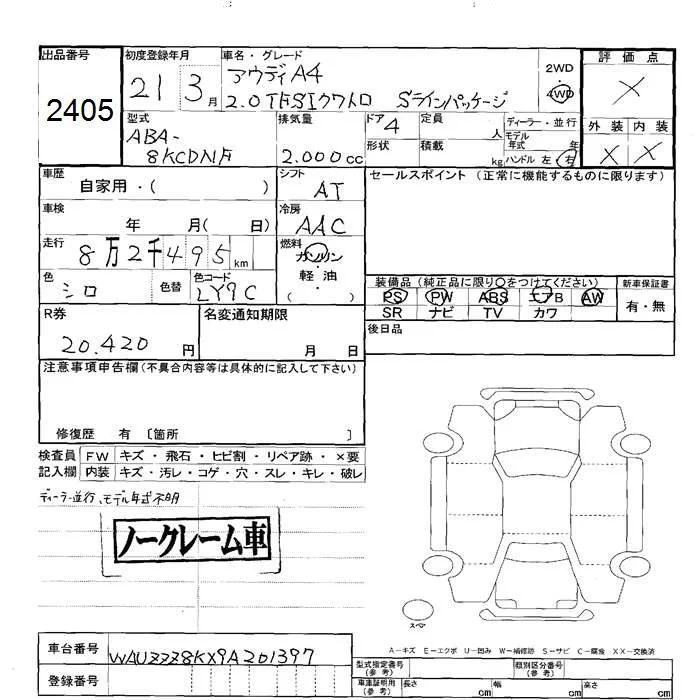 出品番号
2405
初度登録年月
21 3月
車名・グレード
アウディA4
2.0TFSIクワトロ Sラインパッケージ
2WD
・
4WD
評価点
×
外装 内装
× ×
型式
ABA-
8KCDNF
排気量
2.000cc
ドア 4
形状
定員 人
積載 kg
ディーラー・並行
モデル年式 年
ハンドル 左 右
車歴
自家用・( )
シフト
AT
セールスポイント (正常に機能するものに限ります)
車検
年 月( 日)
冷房
AAC
走行
8万2千495km
燃料
ガソリン
・
軽油
( )
色
シロ
色替
色コード
LY9C
装備品(純正品に限り〇をつけてください)
PS PW ABS エアB AW
SR ナビ TV カワ
新車保証書
有・無
R券
20.420円
名変通知期限
月 日
後日品
注意事項申告欄(不具合内容等は具体的に記入して下さい)
修復歴 有 〔箇所 〕
検査員記入欄
FW キズ・飛石・ヒビ割・リペア跡・×要
内装 キズ・汚レ・コゲ・穴・スレ・キレ・破レ
ディーラー並行、モデル年式不明
ノークレーム車
スペア
A−キズ E−エクボ U−凹み W−補修跡 S−サビ C−腐食 XX−交換済
車台番号
WAUZZZ8KX9A201397
登録番号
型式指定番号(参考)
類別区分番号(参考)
車庫証明用(参考)
長さ cm
幅 cm
高さ cm